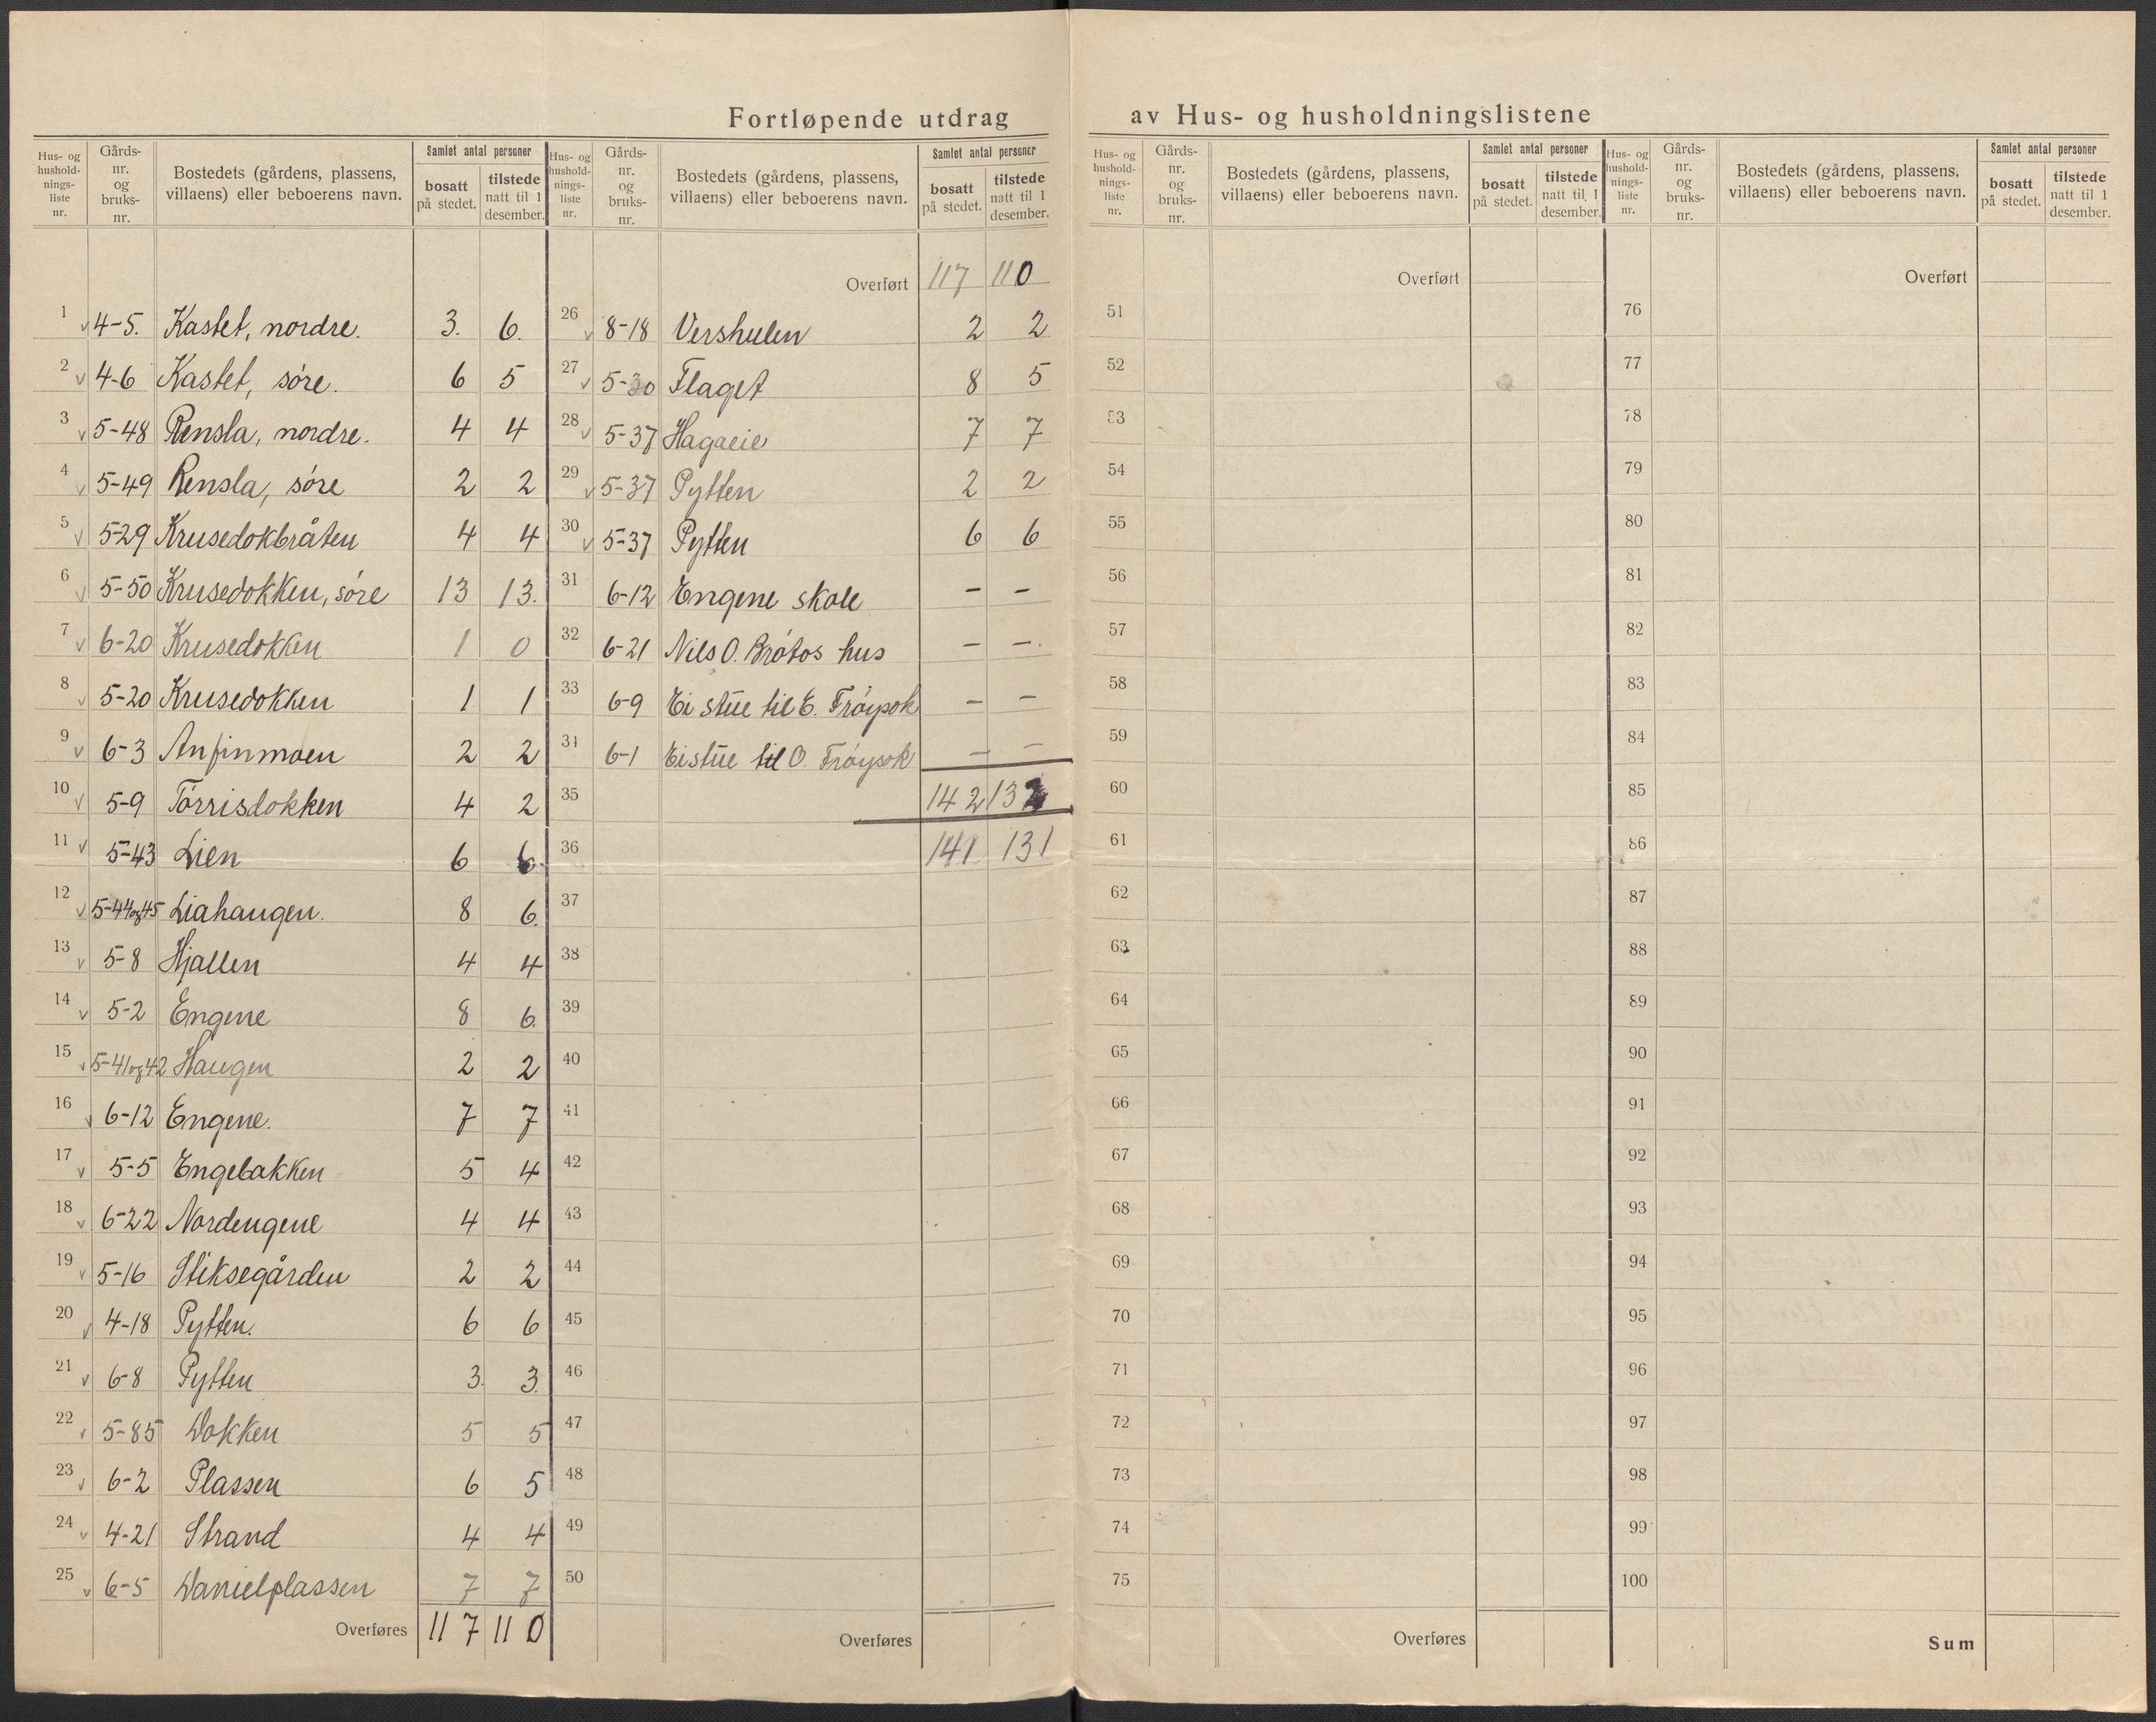 Fortløpende utdrag av Hus- og husholdningslistene
Hus- og husholdnings-liste nr. Gårds-nr. og bruks-nr. Bostedets (gårdens, plassens, villaens) eller beboerens navn. Samlet antal personer bosatt på stedet. tilstede natt til 1 desember.
1 v 4-5. Kastet, nordre. 3. 6.
2 v 4-6 Kastet, søre. 6 5
3 v 5-48 Rensla, nordre. 4 4
4 v 5-49 Rensla, søre 2 2
5 v 5-29 Krusedokbråten 4 4
6 v 5-50 Krusedokken, søre 13 13.
7 v 6-20 Krusedokken 1 0
8 v 5-20 Krusedokken 1 1
9 v 6-3 Anfinmoen 2 2
10 v 5-9 Tørrisdokken 4 2
11 v 5-43 Lien 6 6
12 v 5-44og45 Liahaugen. 8 6.
13 v 5-8 Hjallen 4 4
14 v 5-2 Engene 8 6.
15 v 5-41og42 Haugen 2 2
16 v 6-12 Engene. 7 7
17 v 5-5 Engebakken 5 4
18 v 6-22 Nordengene 4 4
19 v 5-16 Stiksegården 2 2
20 v 4-18 Pytten. 6 6
21 v 6-8 Pytten 3. 3.
22 v 5-85 Dokken 5 5
23 v 6-2 Plassen 6 5
24 v 4-21 Strand 4 4
25 v 6-5 Danielplassen 7 7
Overføres 117 110
Hus- og husholdnings-liste nr. Gårds-nr. og bruks-nr. Bostedets (gårdens, plassens, villaens) eller beboerens navn. Samlet antal personer bosatt på stedet. tilstede natt til 1 desember.
Overført 117 110
26 v 8-18 Vershulen 2 2
27 v 5-30 Flaget 8 5
28 v 5-37 Hagaeie 7 7
29 v 5-37 Pytten 2 2
30 v 5-37 Pytten 6 6
31 6-12 Engene skole - -
32 6-21 Nils O. Bråtos hus - -.
33 6-9 Ei stue til E. Frøysok - -
34 6-1 Ei stue til O. Frøysok - -
35 142 132
36 141 131
37
38
39
40
41
42
43
44
45
46
47
48
49
50
Overføres
Hus- og husholdnings-liste nr. Gårds-nr. og bruks-nr. Bostedets (gårdens, plassens, villaens) eller beboerens navn. Samlet antal personer bosatt på stedet. tilstede natt til 1 desember.
Overført
51
52
53
54
55
56
57
58
59
60
61
62
63
64
65
66
67
68
69
70
71
72
73
74
75
Overføres
Hus- og husholdnings-liste nr. Gårds-nr. og bruks-nr. Bostedets (gårdens, plassens, villaens) eller beboerens navn. Samlet antal personer bosatt på stedet. tilstede natt til 1 desember.
Overført
76
77
78
79
80
81
82
83
84
85
86
87
88
89
90
91
92
93
94
95
96
97
98
99
100
Sum